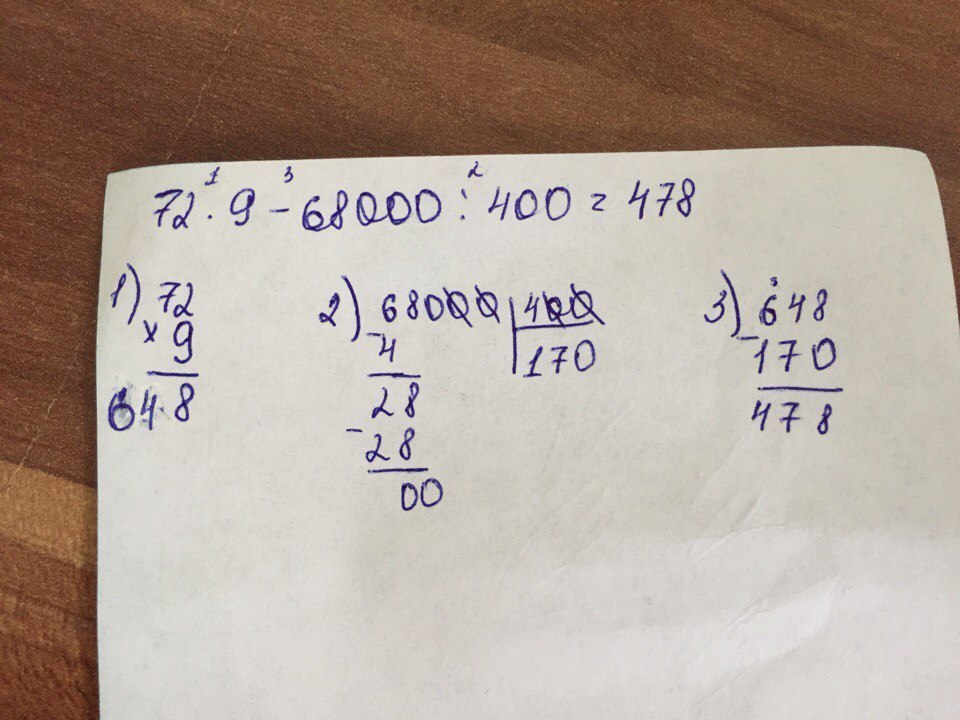 72 · 9 - 68000 : 400 = 478
1 3 2
1) 72
× 9
648
2) 68000 | 400
- 4 | 170
28
- 28
00
3) - 648
170
478